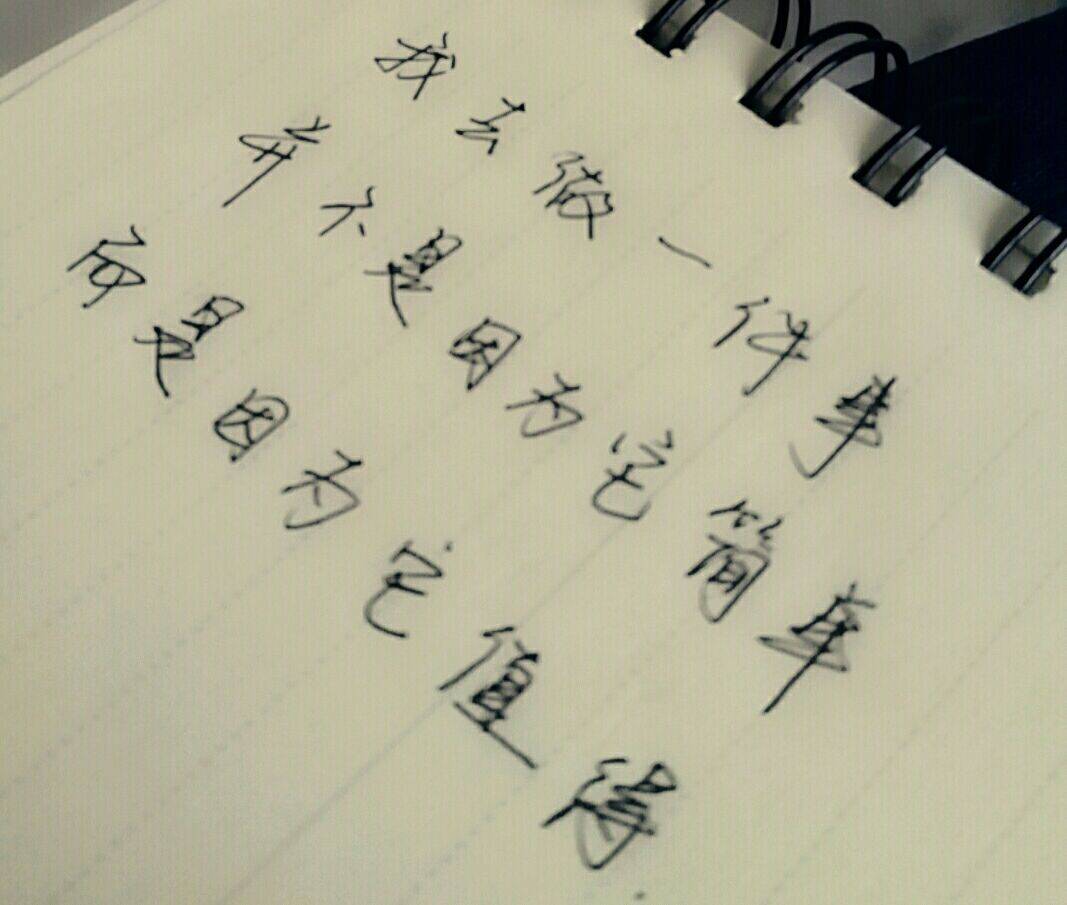 我去做一件事
并不是因为它简单
而是因为它值得.